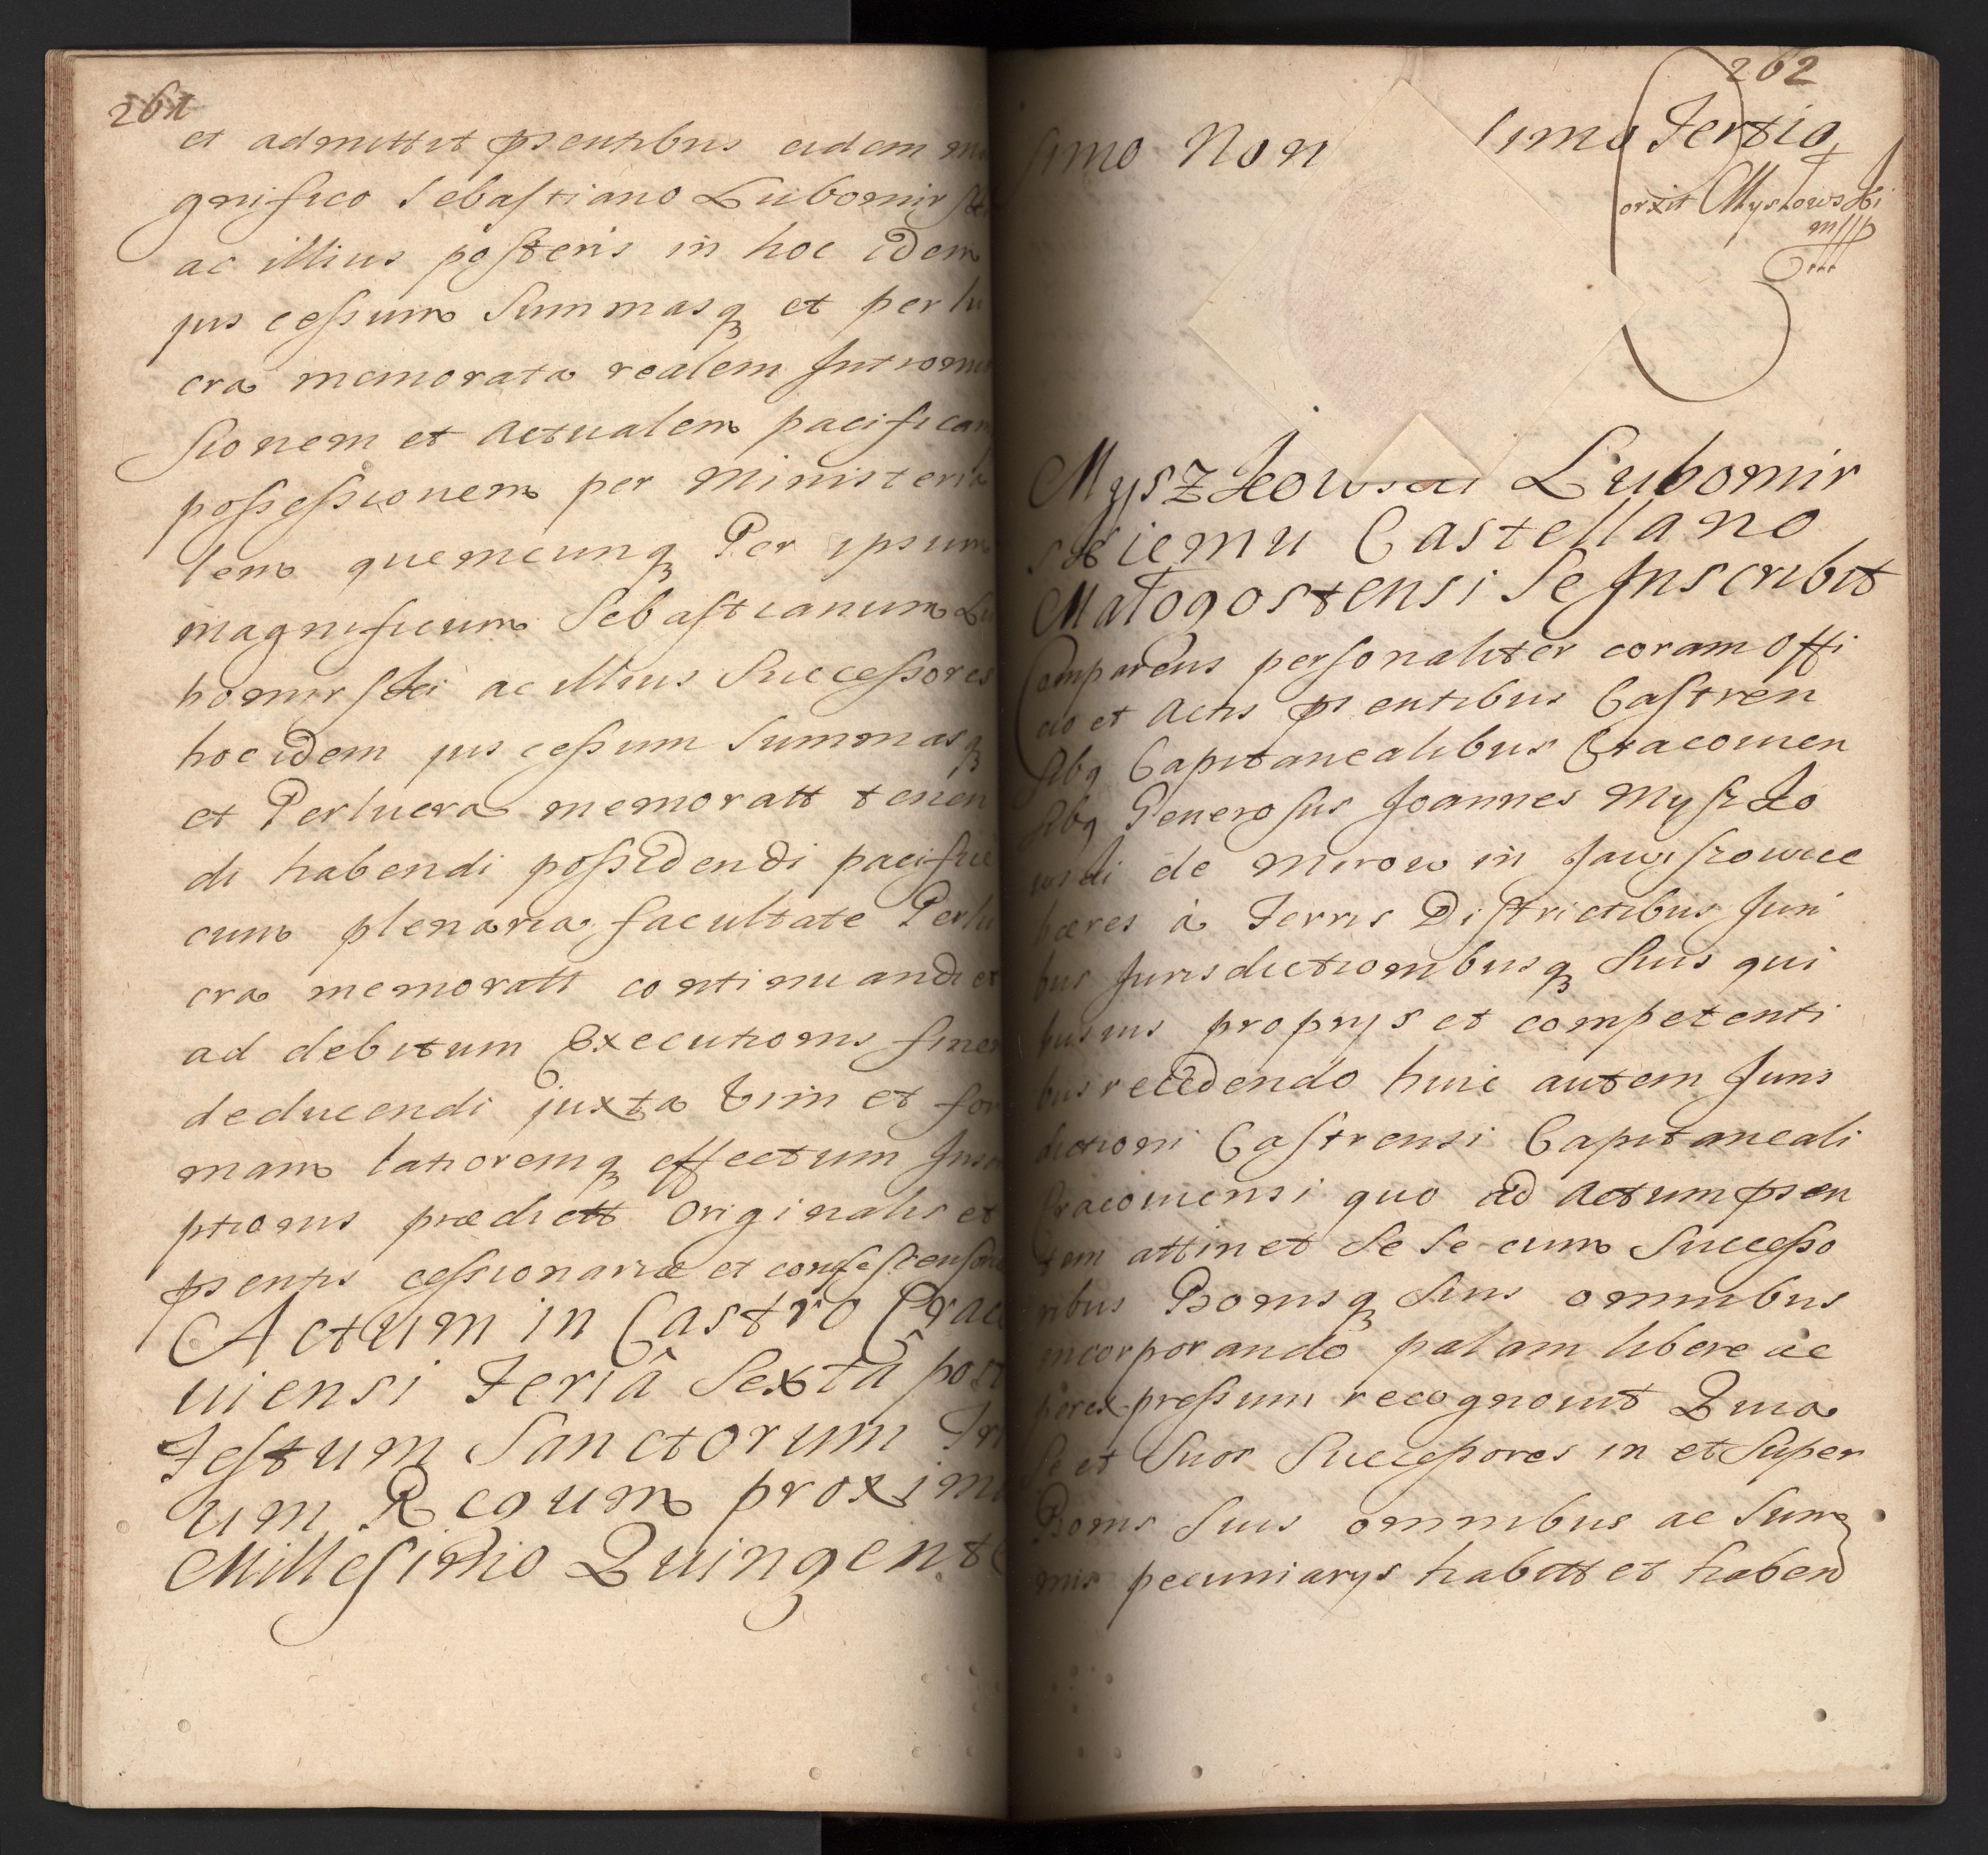 261
et admittit pṡentibus eidem ma
gnifico Sebastiano Lubomirski
ac illius posteris in hoc idem
jus cessum Summasq et perlu
cra memorata realem Intromis
sionem et actualem pacificam
possessionem per Ministeria
lem quemcunq Per ipsum
magnificum Sebastianum Lu
bomirski ac illius Successores
hoc idem jus cessum Summasq
et Perlucra memoratt tenen
di habendi possidendi pacifice
cum plenaria facultate Perlu
cra memoratt continuandi et
ad debitum Executionis finem
deducendi juxta vim et for
mam latioremq effectum Inscri
ptionis prædictt Originalis et
pṡentis cessionariæ et
Actum in Castro Craco
viensi Feriâ Sextâ post
Festum Sanctorum Tri
um Regum proxima
Millesimo Quingente
262
simo Non simo Tertio
Myszkowski Lubomir
skiemu Castellano
Małogostensi Se Inscribit
Comparens personaliter coram Offi
cio et Actis pṡentibus Castren
sibq Capitanealibus Cracovien
sibq Generosus Joannes Myszko
wski de Mirow in Jawiszowice
hæres à Terris Districtibus Juri
bus Jurisdictionibusq Suis qui
busvis proprijs et competenti
bus recedendo huic autem Juris
dictioni Castrensi Capitaneali
Cracoviensi quo ad actum pṡen
tem attinet Se Se cum Successo
ribus Bonisq Suis omnibus
incorporando palam libere ac
per expressum recognovit Quia
Se et Suos Successores in et Super
Bonis Suis omnibus ac Sum
mis pecuniarijs habitt et habend